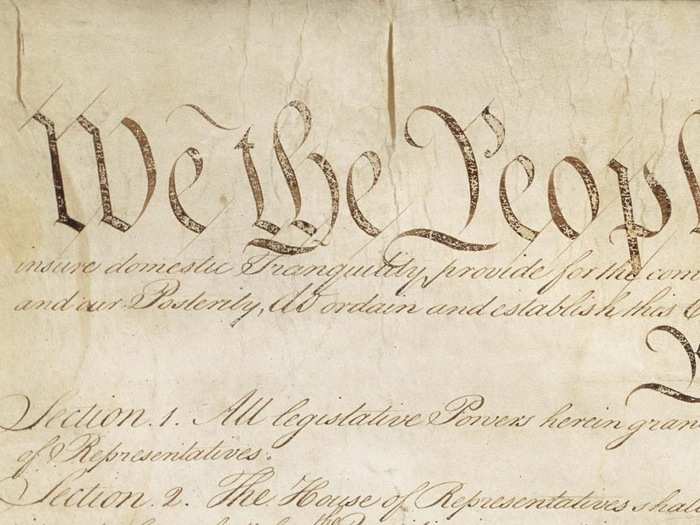 We the Peopl
insure domestic Tranquility, provide for the com
and our Posterity, do ordain and establish this
Section. 1. All legislative Powers herein gran
of Representatives.
Section. 2. The House of Representatives shal